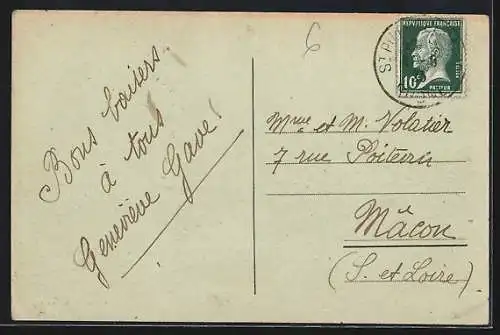 6
Bons baisers
à tous
Geneviève Gave!
RÉPUBLIQUE FRANÇAISE
10c
PASTEUR
Mme et M. Volatier
7 rue Poitevin
Mâcon
(S. et Loire)